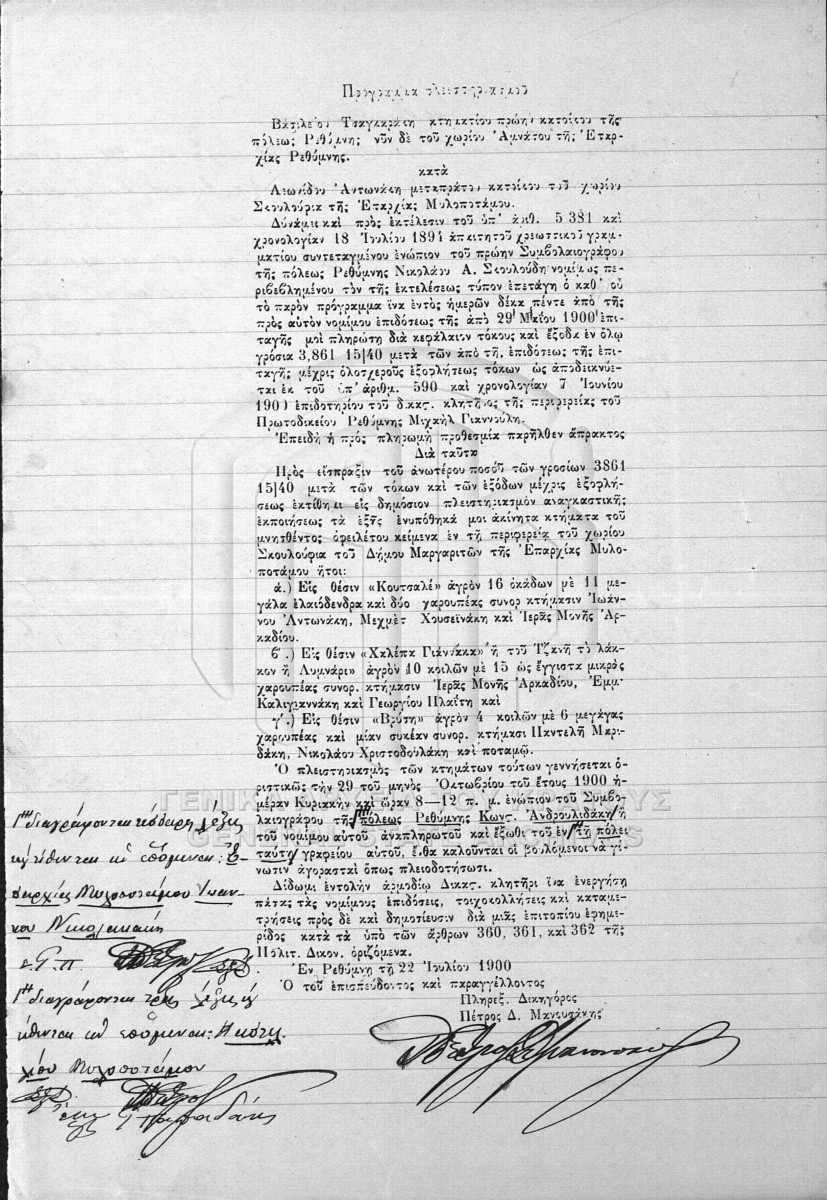 Πρόγραμμα πλειστηριασμοῦ
Βασιλείου Τσαγκαράκη κτηματίου πρώην κατοίκου τῆς
πόλεως Ρεθύμνης νῦν δὲ τοῦ χωρίου Ἀμνάτου τῆς Ἐπαρ-
χίας Ρεθύμνης.
κατὰ
Λεωνίδου Ἀντωνάκη μεταπράτου κατοίκου τοῦ χωρίου
Σκουλούφια τῆς Ἐπαρχίας Μυλοποτάμου.
Δυνάμει καὶ πρὸς ἐκτέλεσιν τοῦ ὑπ' ἀριθ. 5381 καὶ
χρονολογίαν 18 Ἰουλίου 1894 ἀπαιτητοῦ χρεωστικοῦ γραμ-
ματίου συντεταγμένου ἐνώπιον τοῦ πρώην Συμβολαιογράφου
τῆς πόλεως Ρεθύμνης Νικολάου Α. Σκουλούδη νομίμως πε-
ριβεβλημένου τὸν τῆς ἐκτελέσεως τύπον ἐπετάγη ὁ καθ' οὗ
τὸ παρὸν πρόγραμμα ἵνα ἐντὸς ἡμερῶν δέκα πέντε ἀπὸ τῆς
πρὸς αὐτὸν νομίμου ἐπιδόσεως τῆς ἀπὸ 29 Μαΐου 1900 ἐπι-
ταγῆς μοὶ πληρώσῃ διὰ κεφάλαιον τόκους καὶ ἔξοδα ἐν ὅλῳ
γρόσια 3,861 15|40 μετὰ τῶν ἀπὸ τῆς ἐπιδόσεως τῆς ἐπι-
ταγῆς μέχρις ὁλοσχεροῦς ἐξοφλήσεως τόκων ὡς ἀποδεικνύε-
ται ἐκ τοῦ ὑπ' ἀριθμ. 590 καὶ χρονολογίαν 7 Ἰουνίου
1900 ἐπιδοτηρίου τοῦ δικασ. κλητῆρος τῆς περιφερείας τοῦ
Πρωτοδικείου Ρεθύμνης Μιχαὴλ Γιαννούλη.
Ἐπειδὴ ἡ πρὸς πληρωμὴ προθεσμία παρῆλθεν ἄπρακτος
Διὰ ταῦτα
Πρὸς εἴσπραξιν τοῦ ἀνωτέρου ποσοῦ τῶν γροσίων 3861
15|40 μετὰ τῶν τόκων καὶ τῶν ἐξόδων μέχρις ἐξοφλή-
σεως ἐκτίθημι εἰς δημόσιον πλειστηριασμὸν ἀναγκαστικῆς
ἐκποιήσεως τὰ ἑξῆς ἐνυπόθηκά μοι ἀκίνητα κτήματα τοῦ
μνησθέντος ὀφειλέτου κείμενα ἐν τῇ περιφερείᾳ τοῦ χωρίου
Σκουλούφια τοῦ Δήμου Μαργαριτῶν τῆς Ἐπαρχίας Μυλο-
ποτάμου ἤτοι:
ά.) Εἰς θέσιν «Κουτσαλέ» ἀγρὸν 16 ὀκάδων μὲ 11 με-
γάλα ἐλαιόδενδρα καὶ δύο χαρουπέας συνορ κτήμασιν Ἰωάν-
νου Ἀντωνάκη, Μεχμὲτ Χουσεϊνάκη καὶ Ἱερᾶς Μονῆς Ἀρ-
καδίου.
6'.) Εἰς θέσιν «Χαλέπα Γιάννακα» ἢ τοῦ Τζανῆ τὸ λάκ-
κον ἢ Λυμνάρι» ἀγρὸν 10 κοιλῶν μὲ 15 ὡς ἔγγιστα μικρὸς
χαρουπέας συνορ. κτήμασιν Ἱερᾶς Μονῆς Ἀρκαδίου, Ἐμμ.
Καλιγιαννάκη καὶ Γεωργίου Πλαΐτη καὶ
γ'.) Εἰς θέσιν «Βρύση» ἀγρὸν 4 κοιλῶν μὲ 6 μεγάγας
χαρουπέας καὶ μίαν συκέαν συνορ. κτήμασι Παντελῆ Μαρι-
δάκη, Νικολάου Χριστοδουλάκη καὶ ποταμῷ.
Ὁ πλειστηριασμὸς τῶν κτημάτων τούτων γεννήσεται ὁ-
ριστικῶς τὴν 29 τοῦ μηνὸς Ὀκτωβρίου τοῦ ἔτους 1900 ἡ-
μέραν Κυριακὴν καὶ ὥραν 8—12 π. μ. ἐνώπιον τοῦ Συμβο-
λαιογράφου τῆς πόλεως Ρεθύμνης Κωνσ. Ἀνδρουλιδάκη ἢ
τοῦ νομίμου αὐτοῦ ἀναπληρωτοῦ καὶ ἔξωθι τοῦ ἐν τῇ πόλει
ταύτῃ γραφείου αὐτοῦ, ἔνθα καλοῦνται οἱ βουλόμενοι νὰ γί-
νωσιν ἀγορασταὶ ὅπως πλειοδοτήσωσι.
Δίδωμι ἐντολὴν ἁρμοδίῳ Δικασ. κλητῆρι ἵνα ἐνεργήσῃ
πάσας τὰς νομίμους ἐπιδόσεις, τοιχοκολλήσεις καὶ καταμε-
τρήσεις πρὸς δὲ καὶ δημοσίευσιν διὰ μιᾶς ἐπιτοπίου ἐφημε-
ρίδος κατὰ τὰ ὑπὸ τῶν ἄρθρων 360, 361, καὶ 362 τῆς
Πολιτ. Δικον. ὁριζόμενα.
Ἐν Ρεθύμνῃ τῇ 22 Ἰουλίου 1900
Ὁ τοῦ ἐπισπεύδοντος καὶ παραγγέλλοντος
Πληρεξ. Δικηγόρος
Πέτρος Δ. Μανουσάκης
διαγράφονται τέσσαρες λέξεις
τίθενται αἱ ἑπόμεναι: Ἐ-
παρχίας Μυλοποτάμου Ἰωάν-
νου Νικολακάκη
διαγράφονται τρεῖς λέξεις
τίθενται αἱ ἑπόμεναι:
Μυλοποτάμου
ΓΕΝΙΚΑ ΑΡΧΕΙΑ ΤΟΥ ΚΡΑΤΟΥΣ
GENERAL STATE ARCHIVES